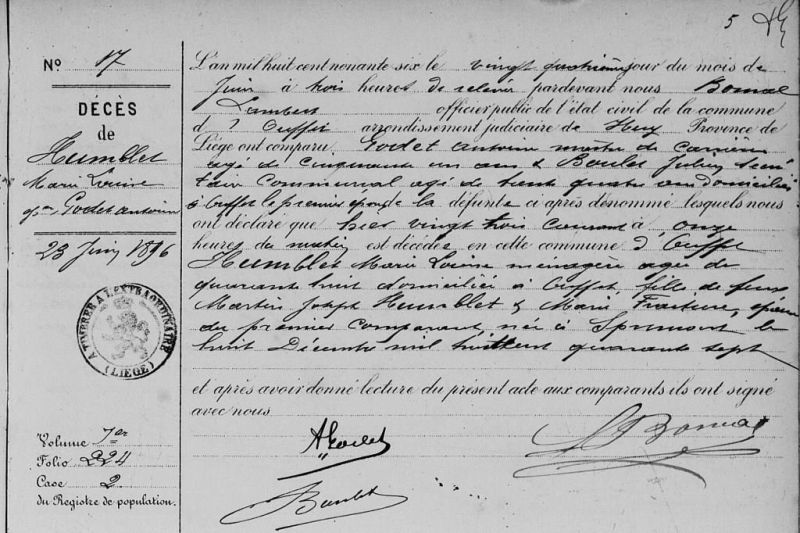 5
N° 17
DÉCÈS
de
Humblet
Marie Louise
Godet Antoine
23 Juin 1896
A TIMBRER A L'EXTRAORDINAIRE
(LIÉGE)
Volume 1er
Folio 224
Case 2
du Registre de population.
L'an mil huit cent nonante six le vingt quatrième jour du mois de
Juin à trois heures de relevée pardevant nous Bomal
Lambert officier public de l'état civil de la commune
d'Ouffet arrondissement judiciaire de Huy Province de
Liège ont comparu Godet Antoine maître de carrière
agé de cinquante un ans & Boulet Julien secré
taire communal agé de trente quatre ans domiciliés
à Ouffet le premier époux de la défunte ci après dénommé lesquels nous
ont déclaré que hier vingt trois courant à onze
heures du matin est décédée en cette commune d'Ouffet
Humblet Marie Louise ménagère agée de
quarante huit domiciliée à Ouffet fille de feus
Martin Joseph Humblet & Marie épouse
du premier comparant, née à Sprimont le
huit Décembre mil huit cent quarante sept
et après avoir donné lecture du présent acte aux comparants ils ont signé
avec nous
A Godet
L Bomal
Boulet